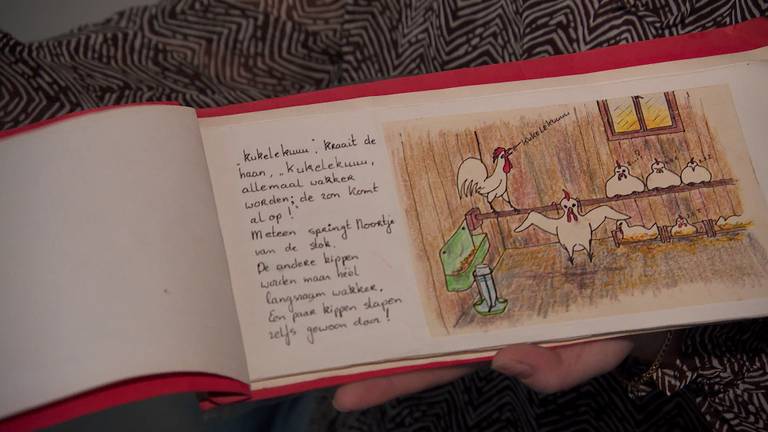 „Kukelekuuu”, kraait de
haan, „Kukelekuuu,
allemaal wakker
worden; de zon komt
al op!”
Meteen springt Noortje
van de stok.
De andere kippen
worden maar héél
langzaam wakker.
Een paar kippen slapen
zelfs gewoon door!
Kukelekuuu